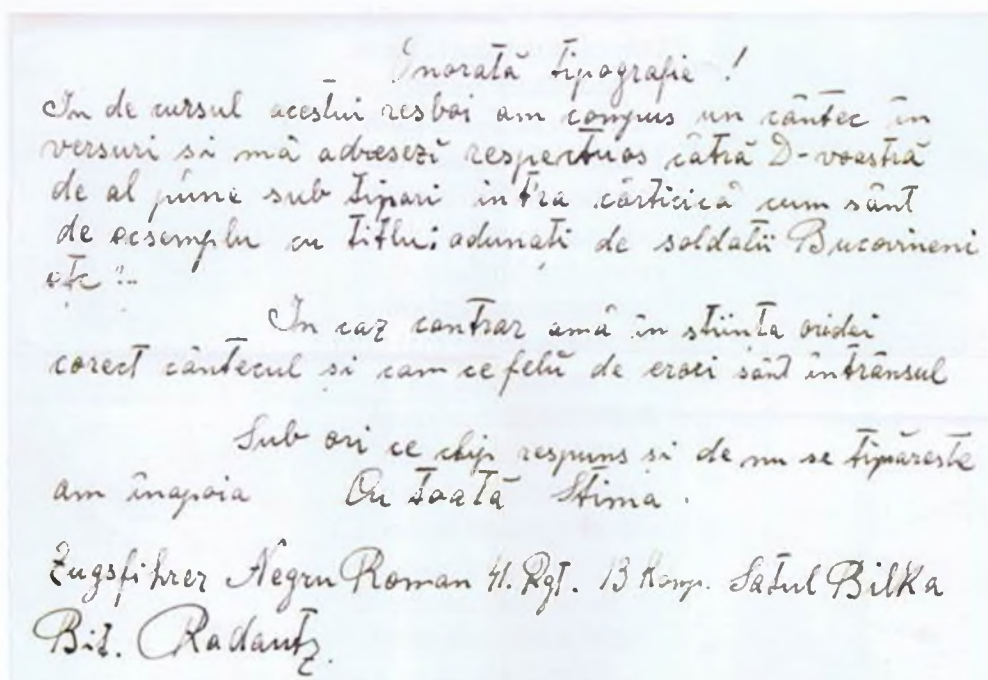 Onorată tipografie !
In de cursul acestui resboi am compus un cântec în
versuri si mă adresezi respectuos cătră D-voastră
de al pune sub tipari intra cărticică cum sânt
de ecsemplu cu titlu: adunati de soldatii Bucovineni
etc !..
In caz contrar amă în stiinta oridei
corect cântecul si cam ce felü de eroci sânt întrânsul
Sub ori ce chip respuns si de nu se tipăreste
am înapoia Cu toată Stima .
Zugsfihrer Negru Roman 41. Rgt. 13 Komp. Satul Bilka
Bit. Radautz.